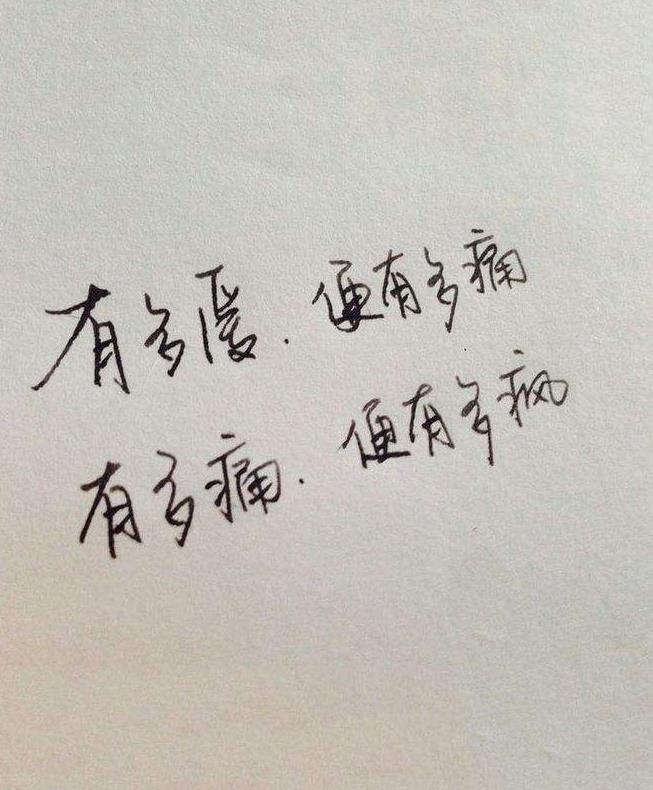 有多暖.便有多痛
有多痛.便有多疯